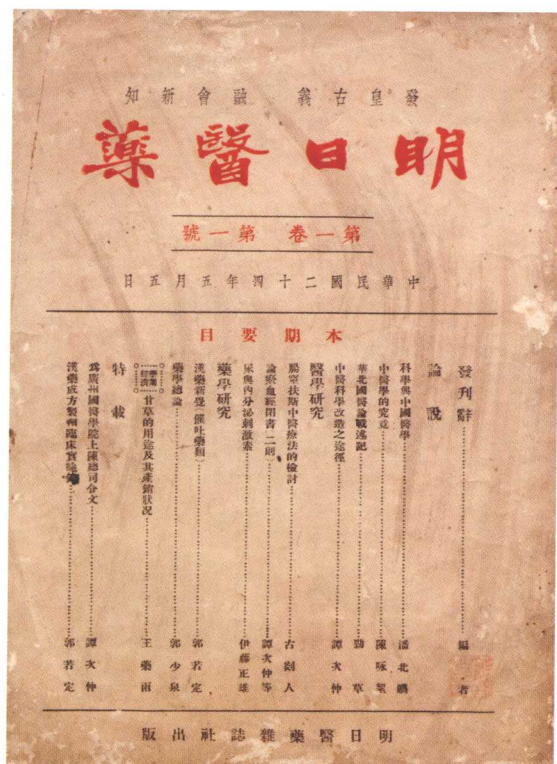 發皇古義 融會新知
明日醫藥
第一卷 第一號
中華民國二十四年五月五日
本期要目
發刊辭……編者
論說
科學與中國醫學……潘北
中醫學的究竟……陳咏
華北國醫論戰述記……勁草
中醫科學改造之途徑……譚次仲
醫學研究
腸窒扶斯中醫療法的檢討……古劍人
論療血經閉書(二則)……譚次仲等
尿與內分泌刺激素……伊藤正雄
藥學研究
漢藥新覺(催吐藥類)……郭若定
藥學總論……郭少泉
經濟 甘草的用途及其產銷狀況……王藥雨
特載
爲廣州國醫學院上陳總司令文……譚次仲
漢藥成方製劑臨床實驗……郭若定
明日醫藥雜誌社出版